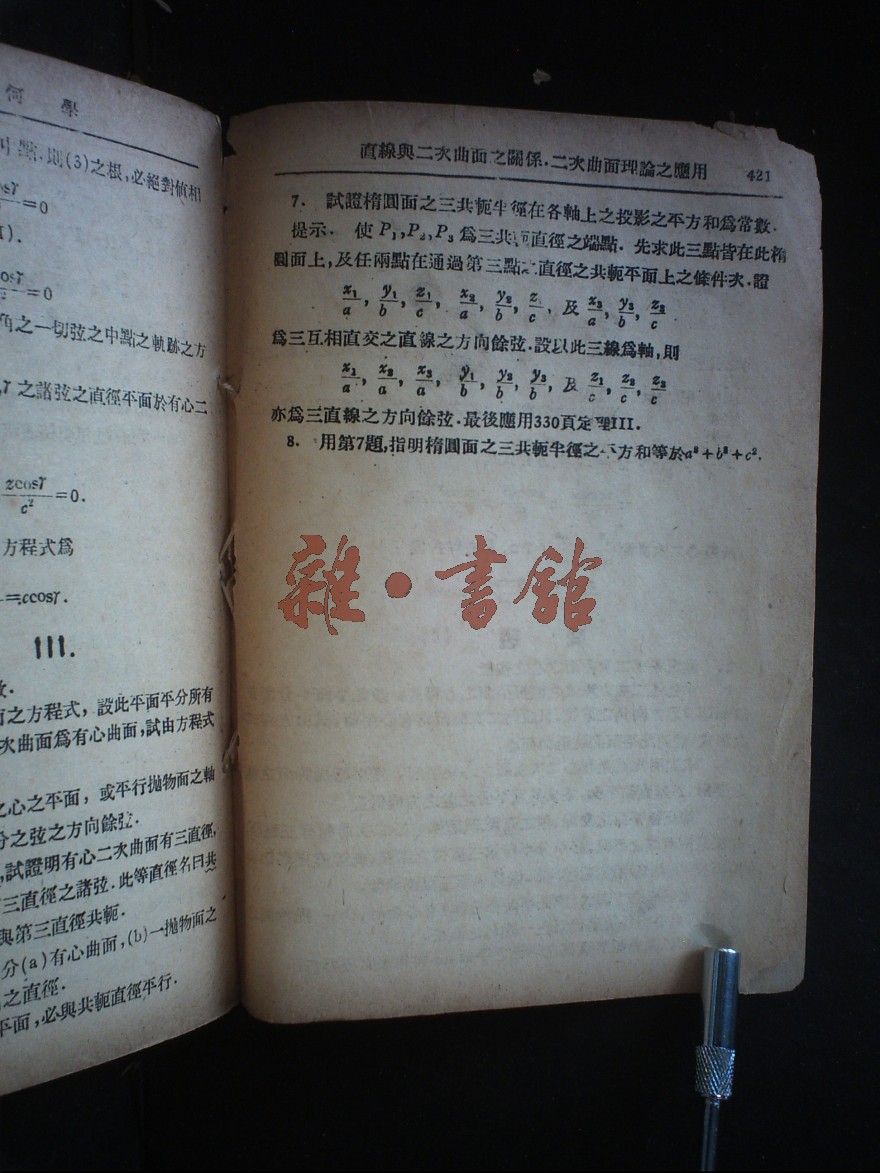 何學
點.則(3)之根,必絕對值相
=0
=0
角之一切弦之中點之軌跡之方
之諸弦之直徑平面於有心二
zcosγ/c² =0.
方程式爲
=ccosγ.
III.
之方程式,設此平面平分所有
次曲面爲有心曲面,試由方程式
之心之平面,或平行拋物面之軸
分之弦之方向餘弦.
試證明有心二次曲面有三直徑,
三直徑之諸弦.此等直徑名曰共
與第三直徑共軛.
分(a)有心曲面,(b)一拋物面之
之直徑.
平面,必與共軛直徑平行.
直線與二次曲面之關係.二次曲面理論之應用 421
7. 試證楕圓面之三共軛半徑在各軸上之投影之平方和爲常數.
提示. 使P₁,P₂,P₃爲三共軛直徑之端點. 先求此三點皆在此楕
圓面上,及任兩點在通過第三點之直徑之共軛平面上之條件次.證
x₁/a, y₁/b, z₁/c, x₂/a, y₂/b, z/c, 及 x₃/a, y₃/b, z₃/c
爲三互相直交之直線之方向餘弦.設以此三線爲軸,則
x₁/a, x₂/a, x₃/a, y₁/b, y₂/b, y₃/b, 及 z₁/c, z₂/c, z₃/c
亦爲三直線之方向餘弦.最後應用330頁定理III.
8. 用第7題,指明楕圓面之三共軛半徑之平方和等於a²+b²+c².
雜·書館